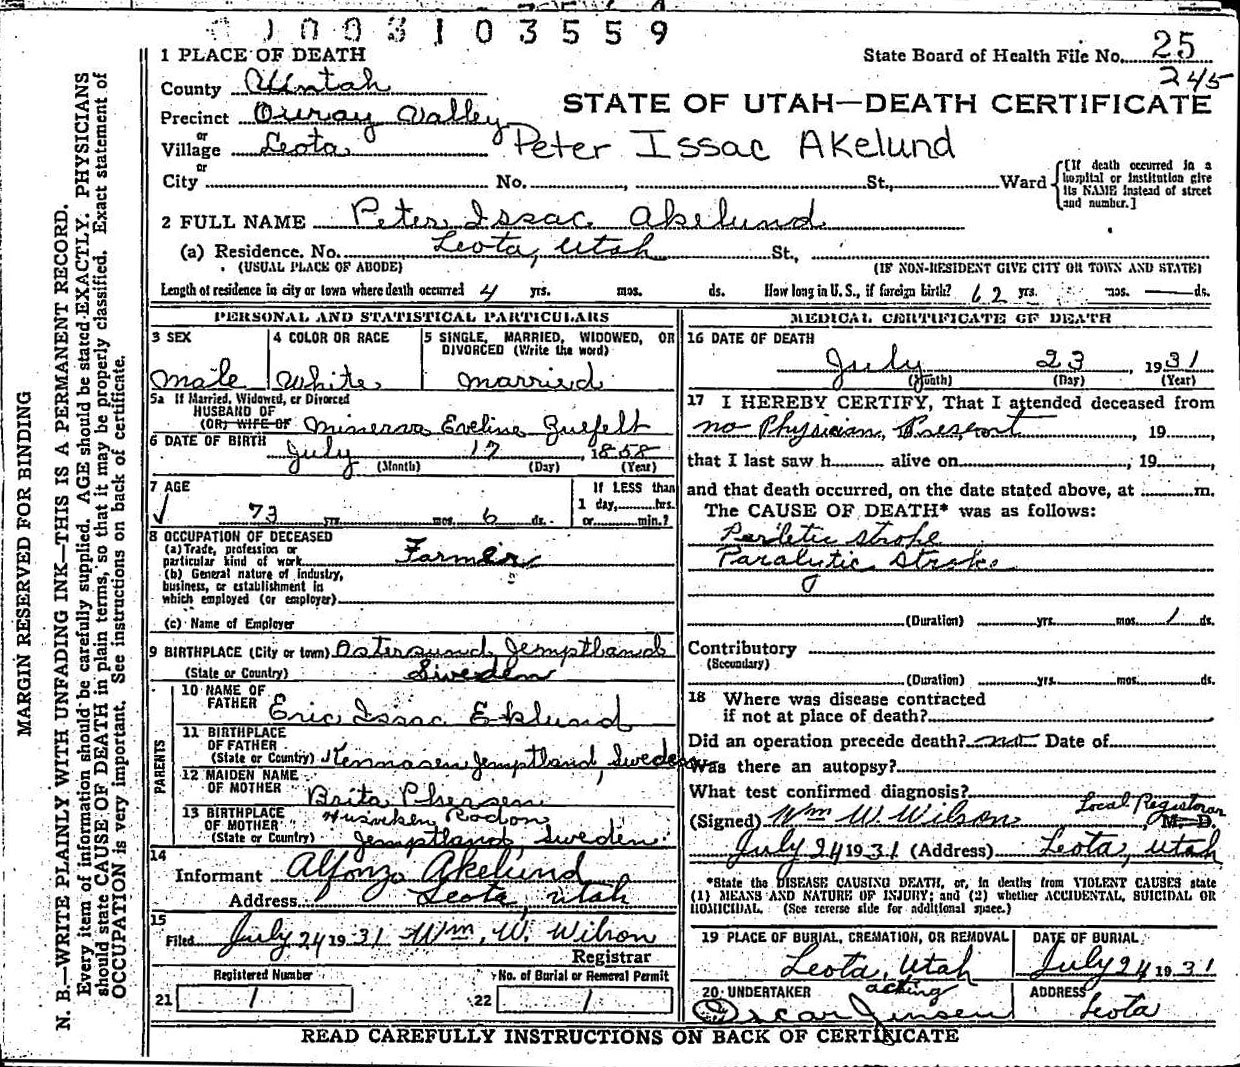 1003103559
1 PLACE OF DEATH
State Board of Health File No. 25
245
County Uintah
STATE OF UTAH—DEATH CERTIFICATE
Precinct Ouray Valley
or
Village Leota
Peter Issac Akelund
or
City No. , St., Ward
[If death occurred in a hospital or institution give its NAME instead of street and number.]
2 FULL NAME Peter Issac Akelund
(a) Residence. No. Leota, Utah St.,
(USUAL PLACE OF ABODE) (IF NON-RESIDENT GIVE CITY OR TOWN AND STATE)
Length of residence in city or town where death occurred 4 yrs. mos. ds. How long in U. S., if foreign birth? 62 yrs. mos. ds.
PERSONAL AND STATISTICAL PARTICULARS
3 SEX
Male
4 COLOR OR RACE
White
5 SINGLE, MARRIED, WIDOWED, OR DIVORCED (Write the word)
Married
5a If Married, Widowed, or Divorced
HUSBAND OF
(OR) WIFE OF Minerva Eveline
6 DATE OF BIRTH
July 17, 1858
(Month) (Day) (Year)
7 AGE
73 yrs. mos. 6 ds.
If LESS than
1 day, hrs.
or min.?
8 OCCUPATION OF DECEASED
(a) Trade, profession or
particular kind of work Farmer
(b) General nature of industry,
business, or establishment in
which employed (or employer)
(c) Name of Employer
9 BIRTHPLACE (City or town) Ostersund Jemptland
(State or Country) Sweden
PARENTS
10 NAME OF
FATHER Eric Issac Eklund
11 BIRTHPLACE
OF FATHER
(State or Country) Jemptland, Sweden
12 MAIDEN NAME
OF MOTHER Brita
13 BIRTHPLACE
OF MOTHER
(State or Country) Jemptland, Sweden
14
Informant Alfonzo Akelund
Address Leota, Utah
15
Filed July 24 1931 Wm. W. Wilson
Registrar
Registered Number
21 1
No. of Burial or Removal Permit
22 1
MEDICAL CERTIFICATE OF DEATH
16 DATE OF DEATH
July 23, 1931
(Month) (Day) (Year)
17 I HEREBY CERTIFY, That I attended deceased from
no Physician, Present, 19 ,
that I last saw h alive on , 19 ,
and that death occurred, on the date stated above, at m.
The CAUSE OF DEATH* was as follows:
Perletic stroke
Paralytic Stroke
(Duration) yrs. mos. 1 ds.
Contributory
(Secondary)
(Duration) yrs. mos. ds.
18 Where was disease contracted
if not at place of death?
Did an operation precede death? no Date of
Was there an autopsy?
What test confirmed diagnosis?
Local Registrar
(Signed) Wm W. Wilson, M. D.
July 24 1931 (Address) Leota, Utah
*State the DISEASE CAUSING DEATH, or, in deaths from VIOLENT CAUSES state
(1) MEANS AND NATURE OF INJURY; and (2) whether ACCIDENTAL, SUICIDAL OR
HOMICIDAL. (See reverse side for additional space.)
19 PLACE OF BURIAL, CREMATION, OR REMOVAL
Leota, Utah
DATE OF BURIAL
July 24 1931
20 UNDERTAKER acting
Oscar Jensen
ADDRESS
Leota
READ CAREFULLY INSTRUCTIONS ON BACK OF CERTIFICATE
MARGIN RESERVED FOR BINDING
N. B.—WRITE PLAINLY WITH UNFADING INK—THIS IS A PERMANENT RECORD.
Every item of information should be carefully supplied. AGE should be stated EXACTLY. PHYSICIANS
should state CAUSE OF DEATH in plain terms, so that it may be properly classified. Exact statement of
OCCUPATION is very important. See instructions on back of certificate.